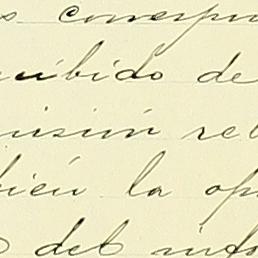 s correspo
cuibido de
misión rel
bién la op
del info